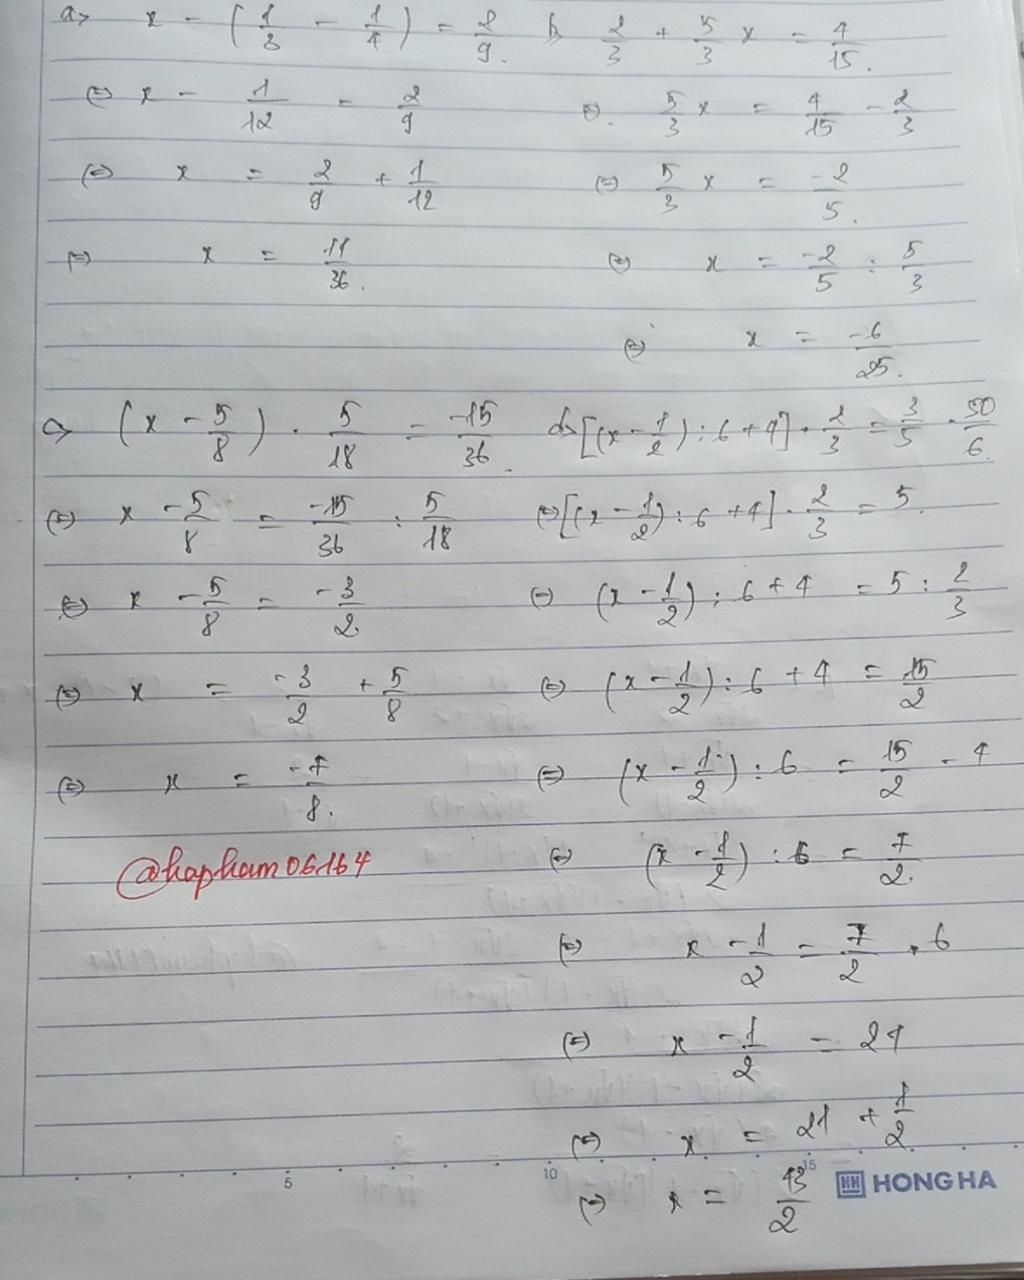 a> x - (1/3 - 1/4) = 2/9.
⇔ x - 1/12 = 2/9
⇔ x = 2/9 + 1/12
⇔ x = 11/36.
b, 2/3 + 5/3 x = 4/15.
⇔. 5/3 x = 4/15 - 2/3
⇔ 5/3 x = -2/5.
⇔ x = -2/5 : 5/3
⇔ x = -6/25.
c> (x - 5/8) . 5/18 = -15/36.
⇔ x - 5/8 = -15/36 : 5/18
⇔ x - 5/8 = -3/2
⇔ x = -3/2 + 5/8
⇔ x = -7/8.
@hapham06164
d> [(x - 1/2) : 6 + 4] . 2/3 = 3/5 . 50/6.
⇔ [(x - 1/2) : 6 + 4] . 2/3 = 5.
⇔ (x - 1/2) : 6 + 4 = 5 : 2/3
⇔ (x - 1/2) : 6 + 4 = 15/2
⇔ (x - 1/2) : 6 = 15/2 - 4
⇔ (x - 1/2) : 6 = 7/2.
⇔ x - 1/2 = 7/2 . 6
⇔ x - 1/2 = 21
⇔ x = 21 + 1/2
⇔ x = 43/2
5 10 15
HH HONG HA